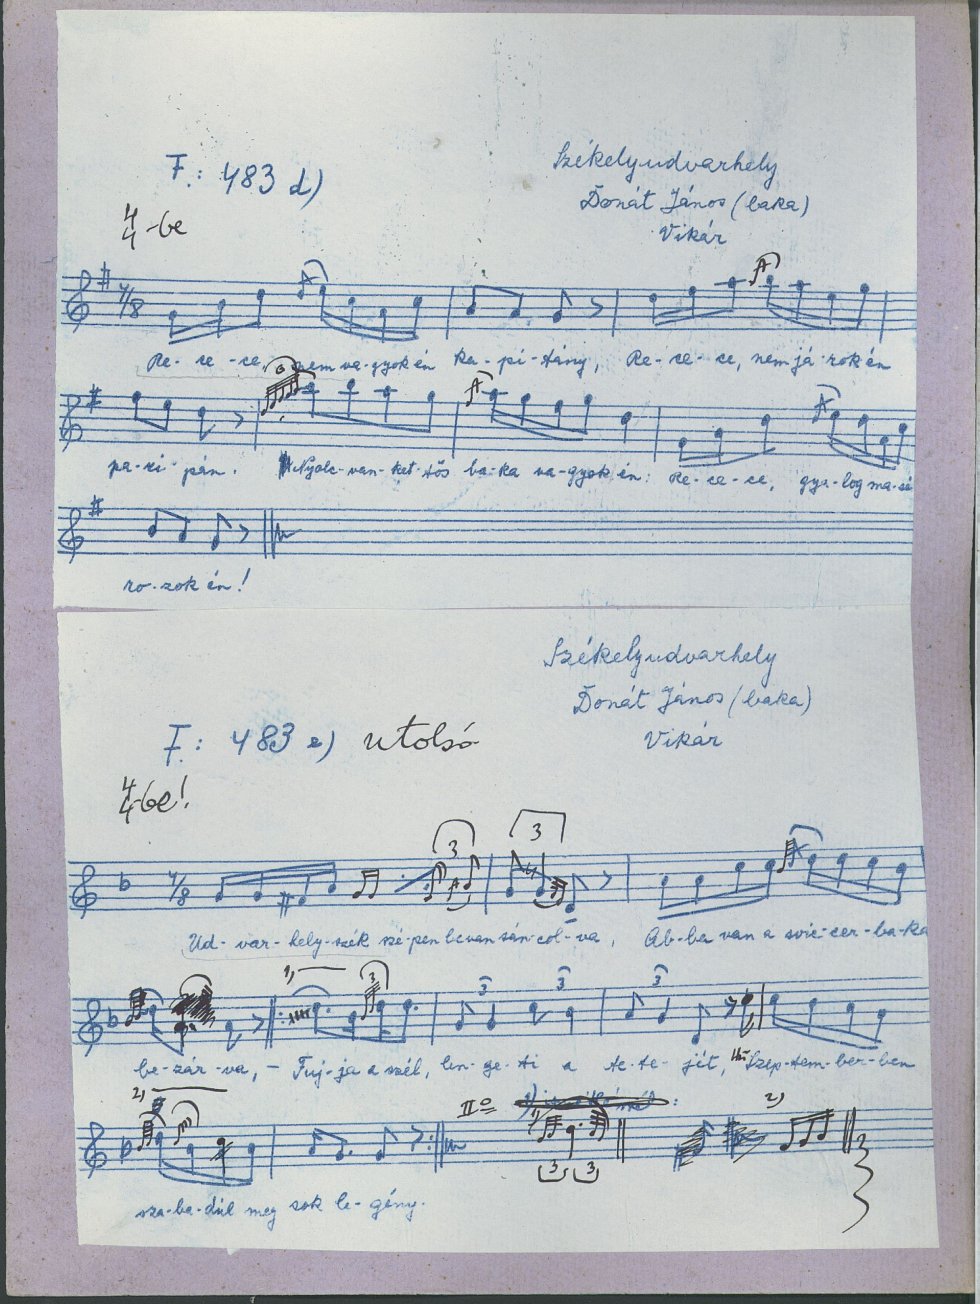 F.: 483 d)
Székelyudvarhely
Donát János (baka)
Vikár
4/4-be
7/8
Re-ce-ce, nem va-gyok én ka-pi-tány, Re-ce-ce, nem já-rok én
pa-ri-pán. Nyolc-van-ket-tős ba-ka va-gyok én: Re-ce-ce, gya-log ma-sé
ro-zok én!
Székelyudvarhely
Donát János (baka)
Vikár
F.: 483 e) utolsó
4/4-be!
3 3
7/8
Ud-var-hely-szék szé-pen be van sán-col-va, Ab-ba van a svic-cer-ba-ka
1, 3 3 3 3
be-zár-va, – Fuj-ja a szél, len-ge-ti a te-te-jét, Szep-tem-ber-ben
2) IIo 1) 2)
3 3
sza-ba-dúl meg sok le-gény.